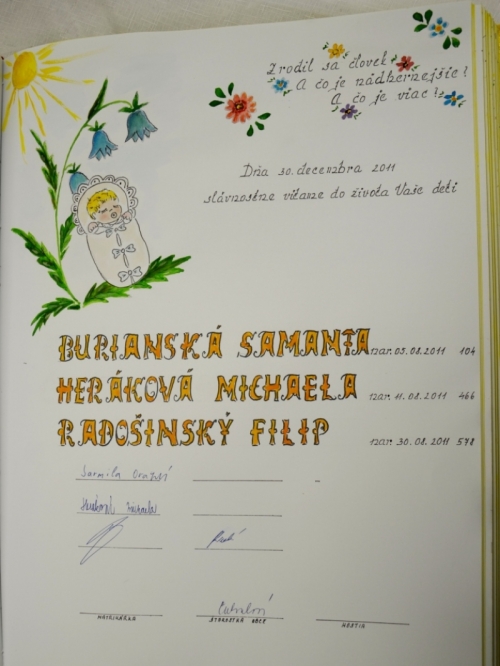 Zrodil sa človek
A čo je nádhernejšie?
A čo je viac?
Dňa 30. decembra 2011
slávnostne vítame do života Vaše deti
BURIANSKÁ SAMANTA nar. 03.08.2011 104
HERÁKOVÁ MICHAELA nar. 11.08.2011 466
RADOŠINSKÝ FILIP nar. 30.08.2011 578
Jarmila
Michaela
MATRIKÁRKA STAROSTKA OBCE HOSTIA